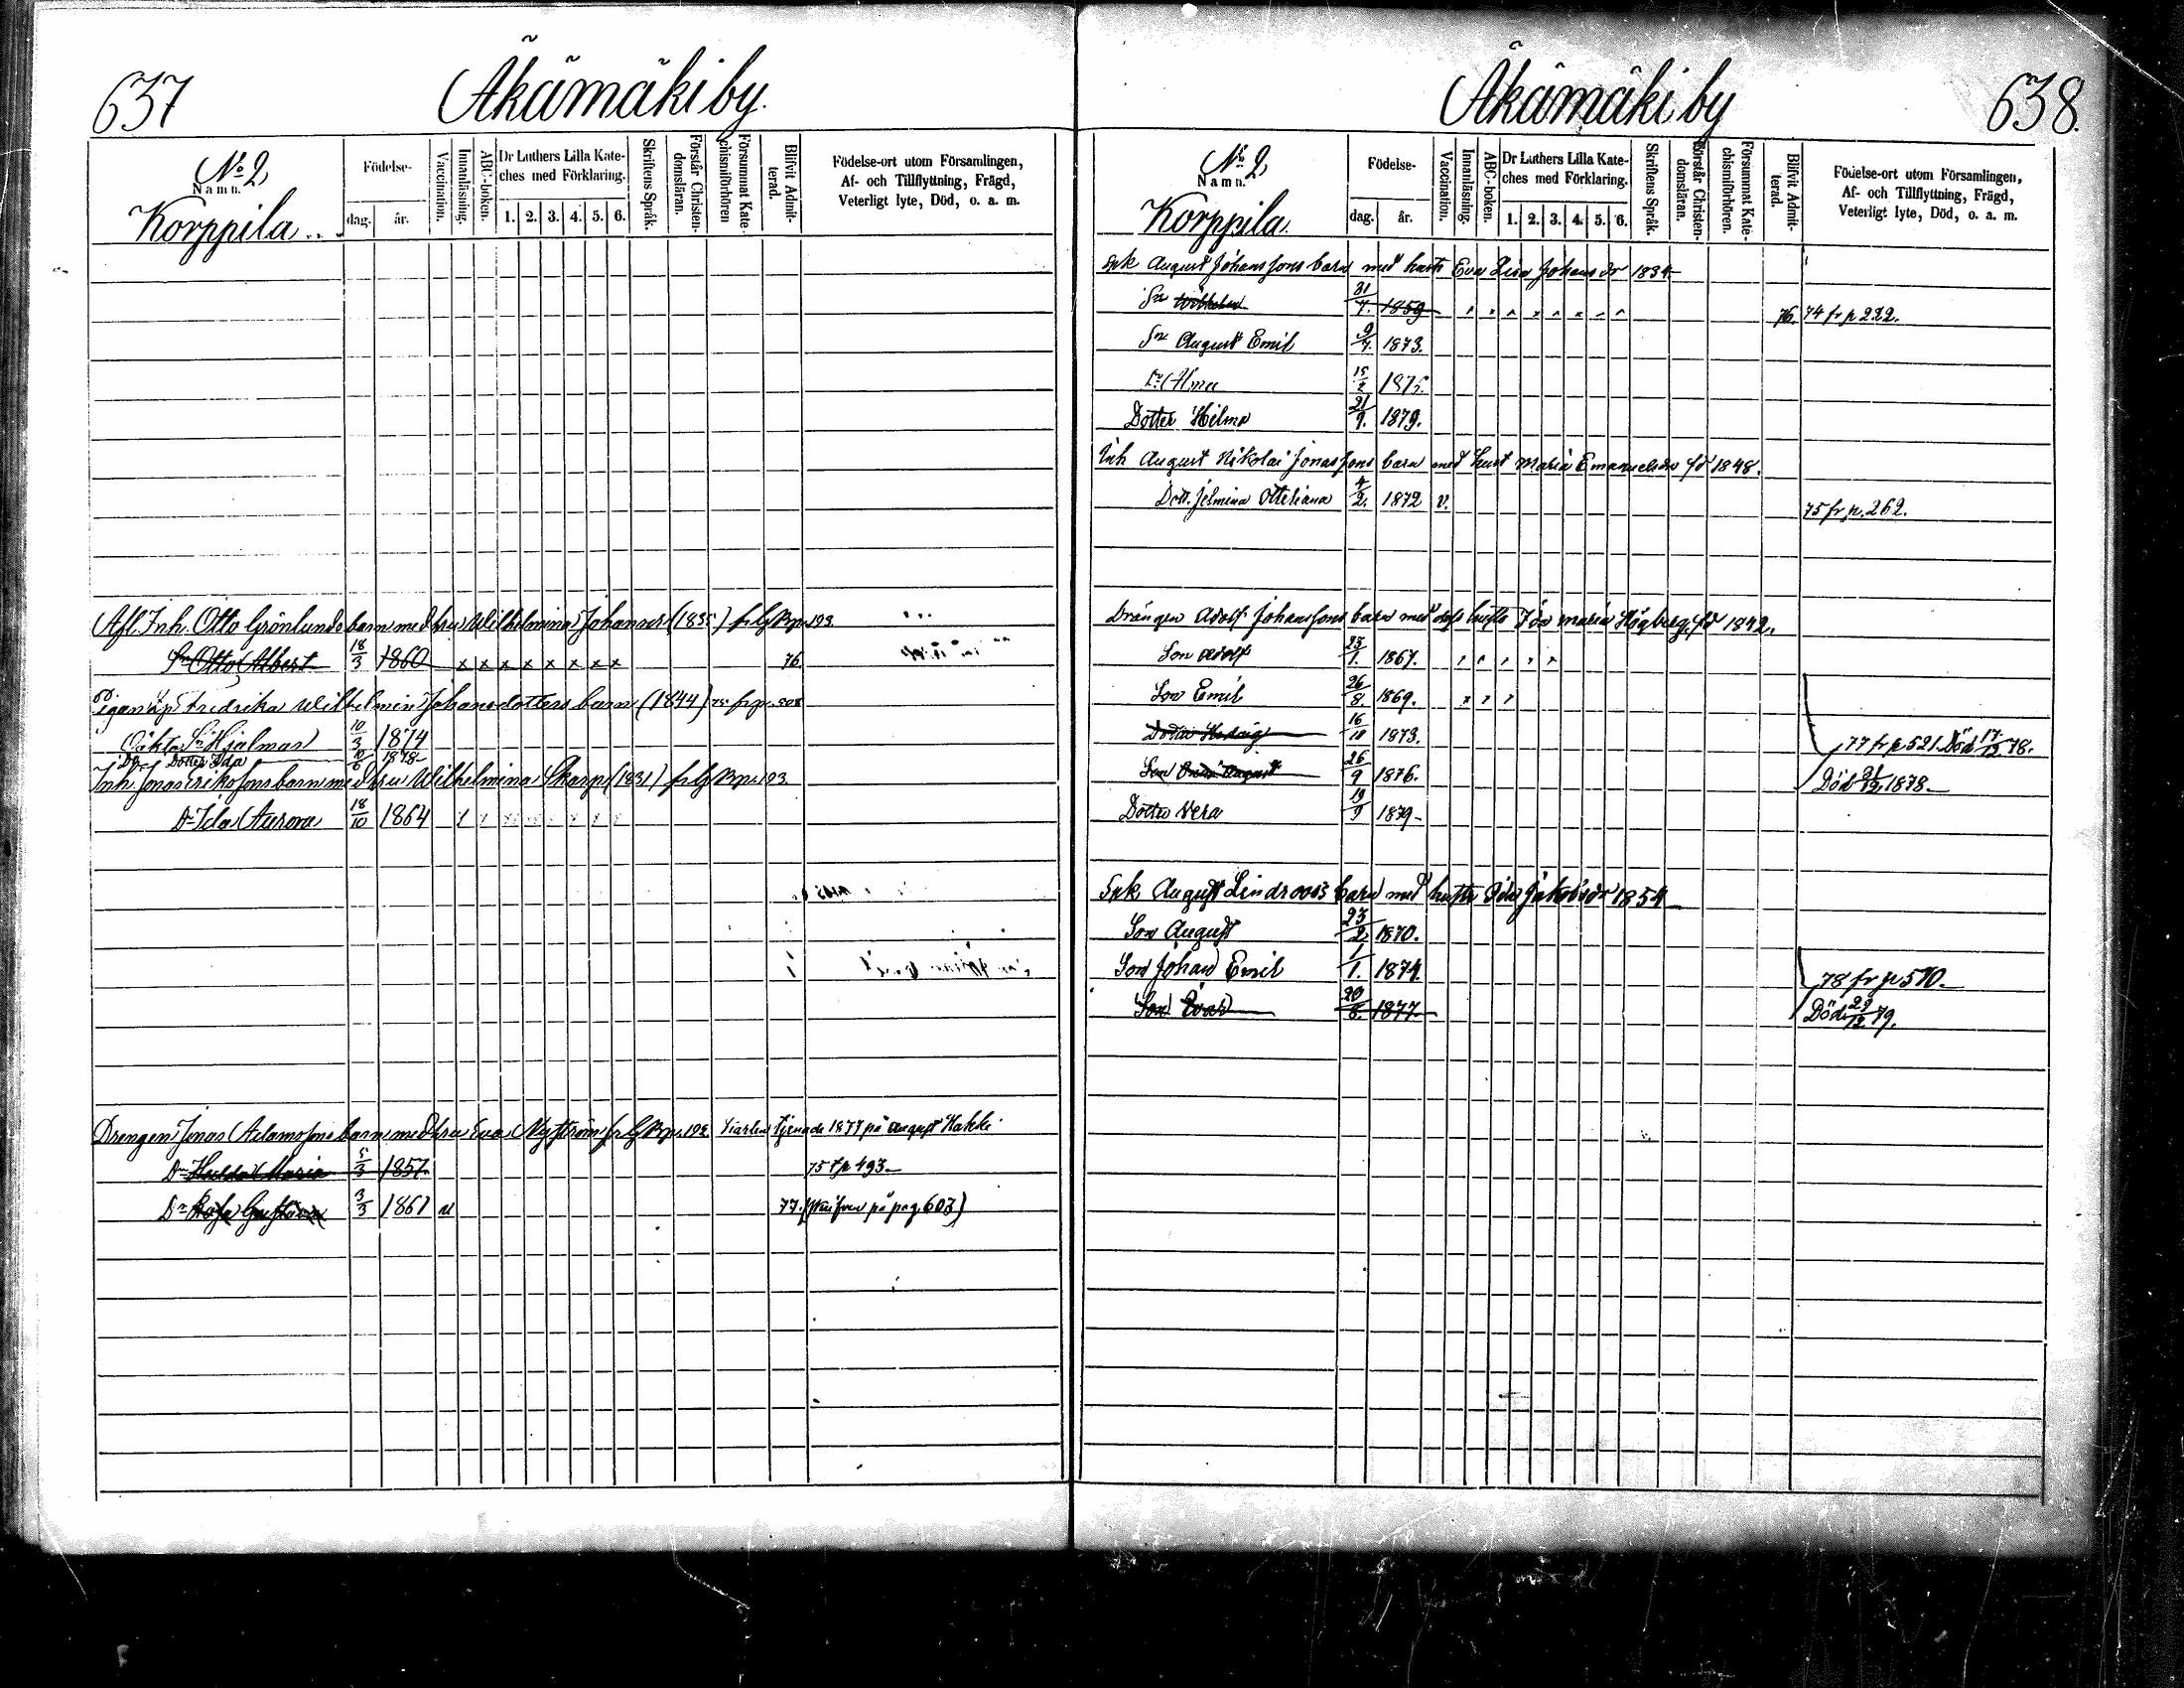 637 Äkämäki by.
No 2,
Namn.
Korppila
Födelse-
dag. år.
Vaccination.
Innanläsning.
ABC-boken.
Dr Luthers Lilla Kate-
ches med Förklaring.
1. 2. 3. 4. 5. 6.
Skriftens Språk.
Förstår Christen-
domsläran.
Försummat Kate-
chismiförhören
Blifvit Admit-
terad.
Födelse-ort utom Församlingen,
Af- och Tillflyttning, Frägd,
Veterligt lyte, Död, o. a. m.
Afl. Inh. Otto Grönlunds barn med hru Wilhelmina Johansdr (1835) fr 193
Sn Otto Albert 18/3 1860 x x x x x x x x 76.
Pigan Fredrika Wilhelmin Johansdotters barn (1844) 75 fr p. 508
Oäkta Sn Hjalmar 10/3 1874
Do Dotter Ida 10/6 1878
Inh. Jonas Eriksson barn med hru Wilhelmina Skarp (1831) fr 193.
Dr Ida Aurora 18/10 1864
Drengen Jonas Adamssons barn med hru Eva Nyström fr 192. tjenade 1877 på August Hakki
Dr Hulda Maria 5/3 1857 75 t p 493
Dr Rosa Gustava 3/3 1861 77. (på pag. 603)
Äkämäki by 638.
No 2,
Namn.
Korppila.
Födelse-
dag. år.
Vaccination.
Innanläsning.
ABC-boken.
Dr Luthers Lilla Kate-
ches med Förklaring.
1. 2. 3. 4. 5. 6.
Skriftens Språk.
Förstår Christen-
domsläran.
Försummat Kate-
chismiförhören.
Blifvit Admit-
terad.
Födelse-ort utom Församlingen,
Af- och Tillflyttning, Frägd,
Veterligt lyte, Död, o. a. m.
Spk August Johanssons barn med hustr Eva Lisa Johansdr 1834
Sn Wilhelm 31/7. 1859 76. 74 fr p 222.
Sn August Emil 9/7. 1873.
Dr Alma 15/2 1875.
Dotter Hilma 21/9. 1879.
Inh August Nikolai Jonassons barn med hust Maria Emanuelsdr fd 1848.
Dott. Jelmina Otteliana 4/2. 1872 v. 75 fr. p. 262.
Drängen Adolf Johanssons barn med dess hustru Ida Maria Högberg, fd 1842.
Son Adolf 23/1. 1867.
Son Emil 26/8. 1869.
Dotter Hedvig 16/10 1873. 77 fr p 521. Död 17/12 78.
Son August 26/9 1876. Död 21/12 1878.
Dotter Vera 19/9 1879
Spk August Lindroos barn med hustru Ida Jakobsdr 1854
Son August 23/2. 1870.
Son Johan Emil 1/1. 1874. 78 fr p 510.
Son Evar 20/8. 1877 Död 29/12 79.